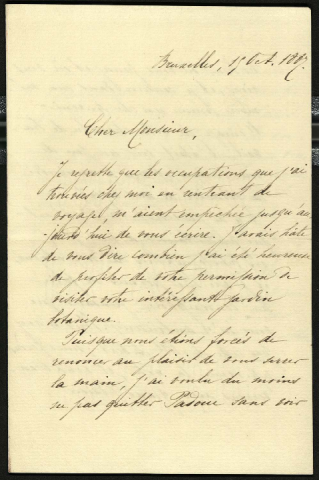 Bruxelles, 15 Oct. 1887.
Cher Monsieur,
Je regrette que les occupations que j'ai
trouvées chez moi en rentrant de
voyage, m'aient empêchée jusqu'au-
jourd'hui de vous écrire. J'avais hâte
de vous dire combien j'ai été heureuse
de profiter de votre permission de
visiter votre intéressant jardin
botanique.
Puisque nous étions forcés de
renoncer au plaisir de vous serrer
la main, j'ai voulu du moins
ne pas quitter Padoue sans voir